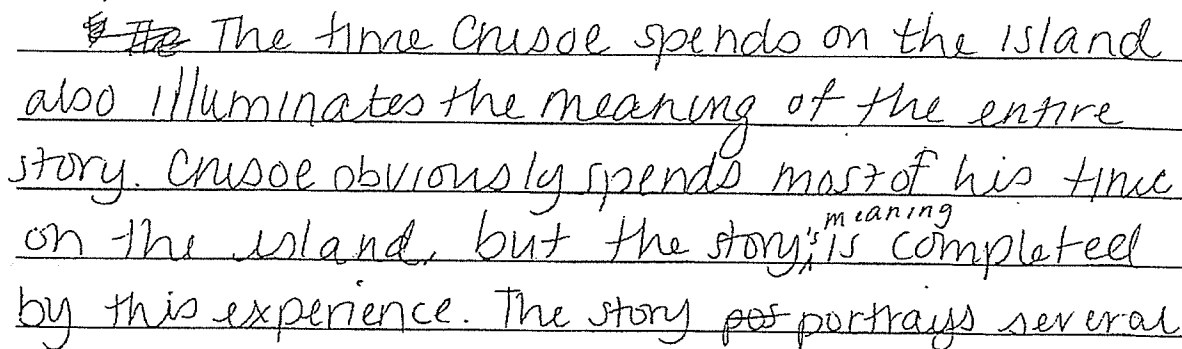 The time Crusoe spends on the island
also illuminates the meaning of the entire
story. Crusoe obviously spends most of his time
on the island, but the story's meaning is completed
by this experience. The story portrays several